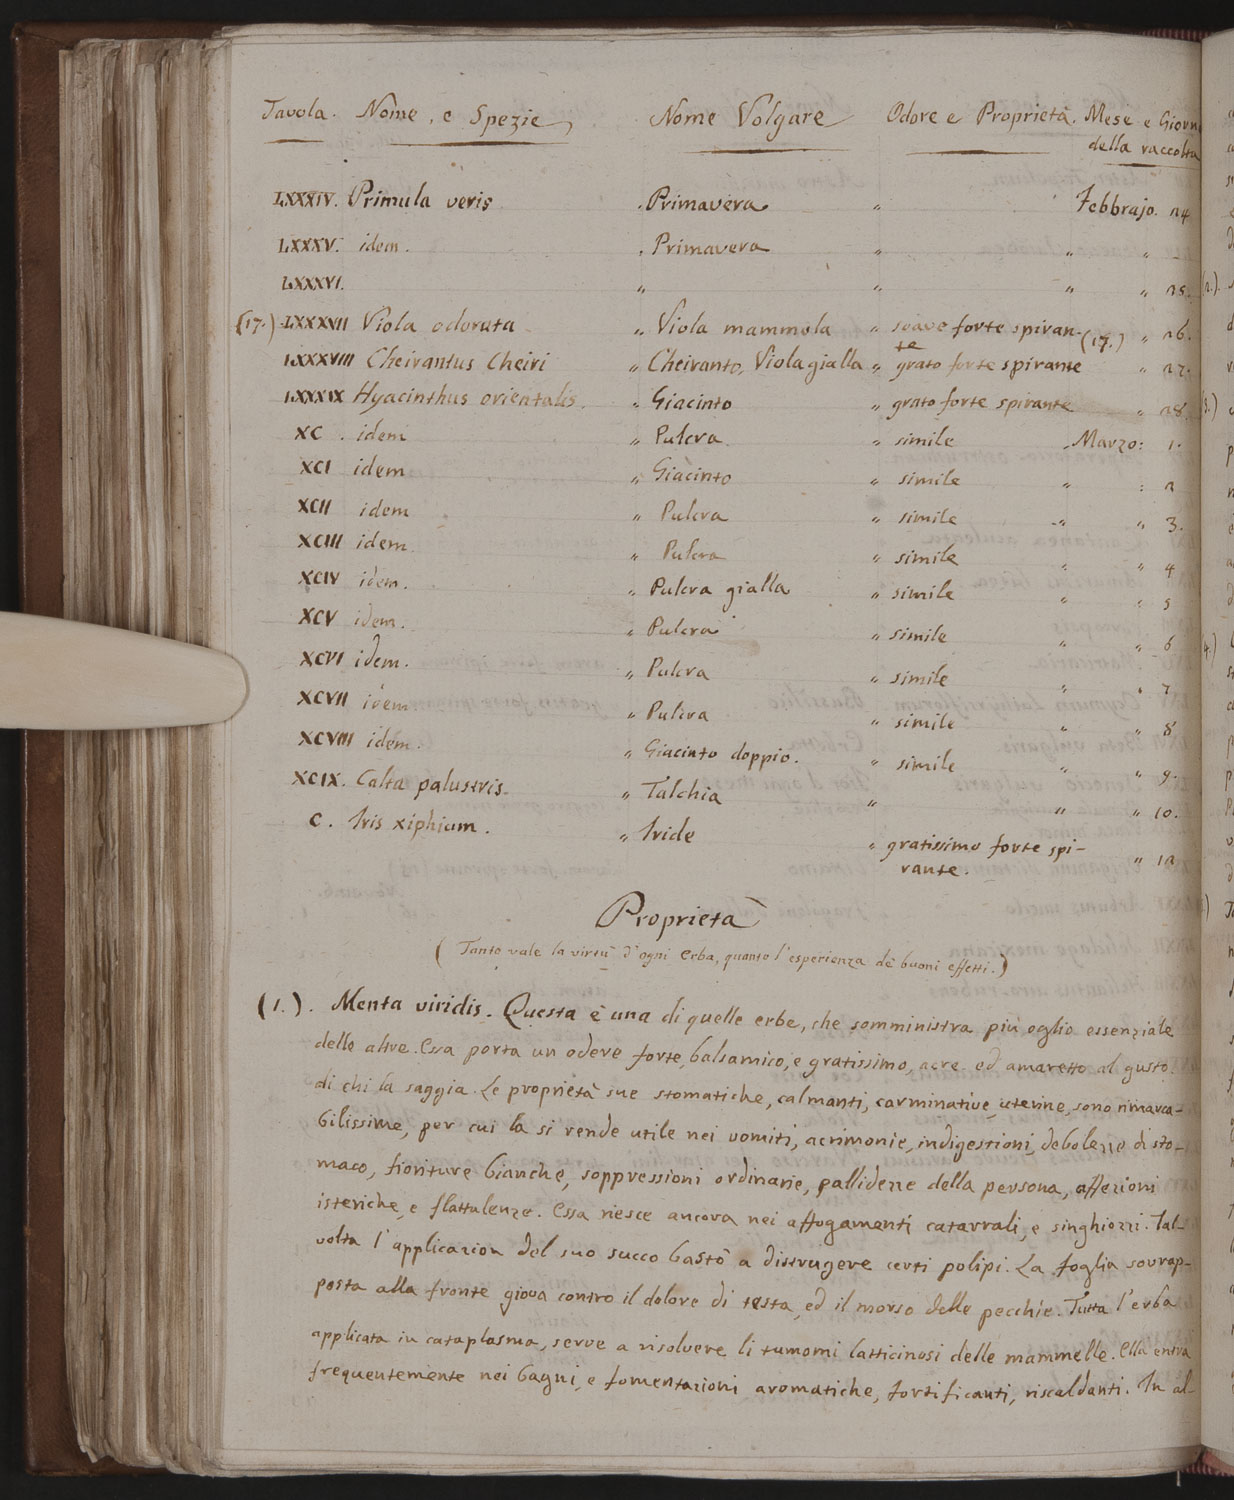 Tavola. Nome, e Spezie Nome Volgare Odore e Proprietà. Mese e Giorn
della raccolta
LXXXIV. Primula veris . Primavera „ Febbrajo. 24
LXXXV. idem. . Primavera „ „ „
LXXXVI. „ „ „ „ 25.
(17.) LXXXVII Viola odorata „ Viola mammola „ soave forte spiran- (17.) „ 26.
te
LXXXVIII Cheirantus Cheiri „ Cheiranto, Viola gialla „ grato forte spirante „ 27.
LXXXIX Hyacinthus orientalis. „ Giacinto „ grato forte spirante „ 28.
XC . idem „ Pulcra „ simile . Marzo: 1.
XCI idem „ Giacinto „ simile „ : 2
XCII idem „ Pulcra „ simile „ „ 3.
XCIII idem „ Pulcra „ simile „ „ 4
XCIV idem. „ Pulcra gialla „ simile „ „ 5
XCV idem. „ Pulcra „ simile „ „ 6
XCVI idem. „ Pulcra „ simile „ „ 7
XCVII idem „ Pulcra „ simile „ „ 8
XCVIII idem. „ Giacinto doppio. „ simile „ „ 9.
XCIX. Calta palustris. „ Talchia „ „ „ 10.
C. Iris xiphium. „ Iride „ gratissimo forte spi- „ 12
rante.
Proprietà
(Tanto vale la virtù d'ogni erba, quanto l'esperienza de buoni effetti.)
(1.). Menta viridis. Questa è una di quelle erbe, che somministra più oglio essenziale
delle altre. Essa porta un odore forte, balsamico, e gratissimo, acre ed amaretto al gusto
di chi la saggia. Le proprietà sue stomatiche, calmanti, carminative, uterine, sono rimarca-
bilissime, per cui la si rende utile nei vomiti, acrimonie, indigestioni, debolezze di sto-
maco, fioriture bianche, soppressioni ordinarie, pallidezze della persona, affezioni
isteriche, e flattulenze. Essa riesce ancora nei affogamenti catarrali, e singhiozzi. Tal-
volta l'applicazion del suo succo bastò a distrugere certi polipi. La foglia sovrap-
posta alla fronte giova contro il dolore di testa, ed il morso delle pecchie. Tutta l'erba
applicata in cataplasma, serve a risolvere li tumomi latticinosi delle mammelle. Ella entra
frequentemente nei bagni, e fomentazioni aromatiche, fortificanti, riscaldanti. In al-